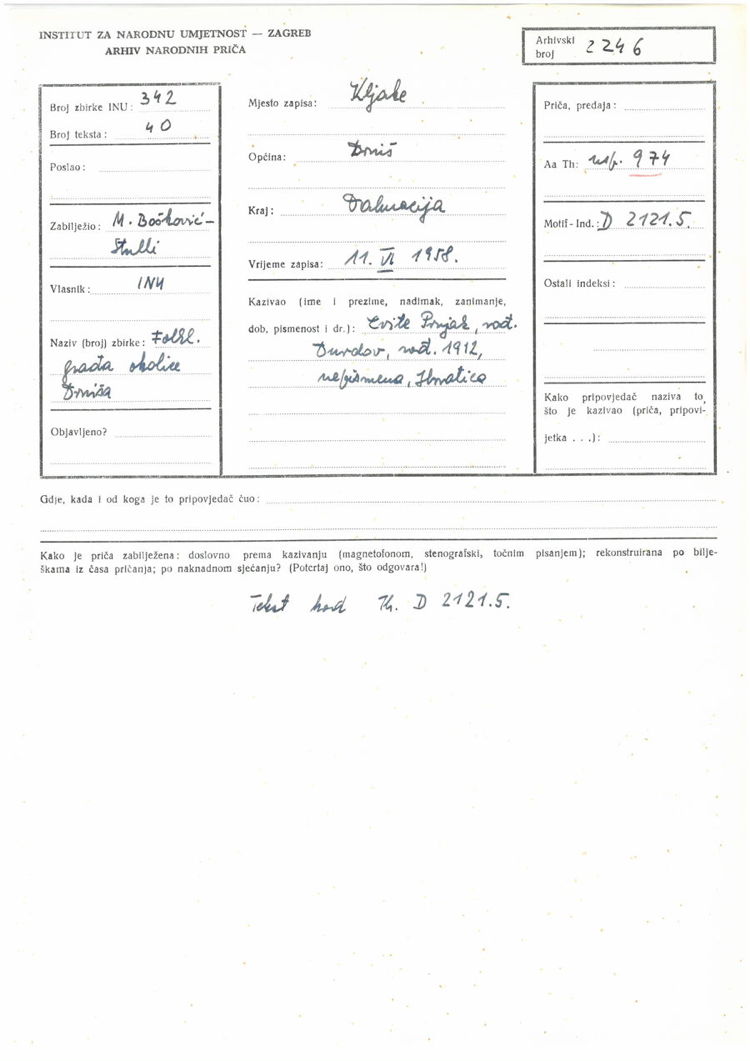 INSTITUT ZA NARODNU UMJETNOST — ZAGREB
ARHIV NARODNIH PRIČA
Arhivski broj 2246
Broj zbirke INU: 342
Broj teksta: 40
Poslao:
Zabilježio: M. Bošković-
Stulli
Vlasnik: INU
Naziv (broj) zbirke: Folkl.
građa okolice
Drniša
Objavljeno?
Mjesto zapisa: Kljake
Općina: Drniš
Kraj: Dalmacija
Vrijeme zapisa: 11. VI 1958.
Kazivao (ime i prezime, nadimak, zanimanje,
dob, pismenost i dr.): Cvite rođ.
rođ. 1912,
nepismena, Hrvatica
Priča, predaja:
Aa Th: usp. 974
Motif-Ind.: D 2121.5.
Ostali indeksi:
Kako pripovjedač naziva to,
što je kazivao (priča, pripovi-
jetka . . .):
Gdje, kada i od koga je to pripovjedač čuo:
Kako je priča zabilježena: doslovno prema kazivanju (magnetofonom, stenografski, točnim pisanjem); rekonstruirana po bilje-
škama iz časa pričanja; po naknadnom sjećanju? (Potcrtaj ono, što odgovara!)
Tekst kod Th. D 2121.5.